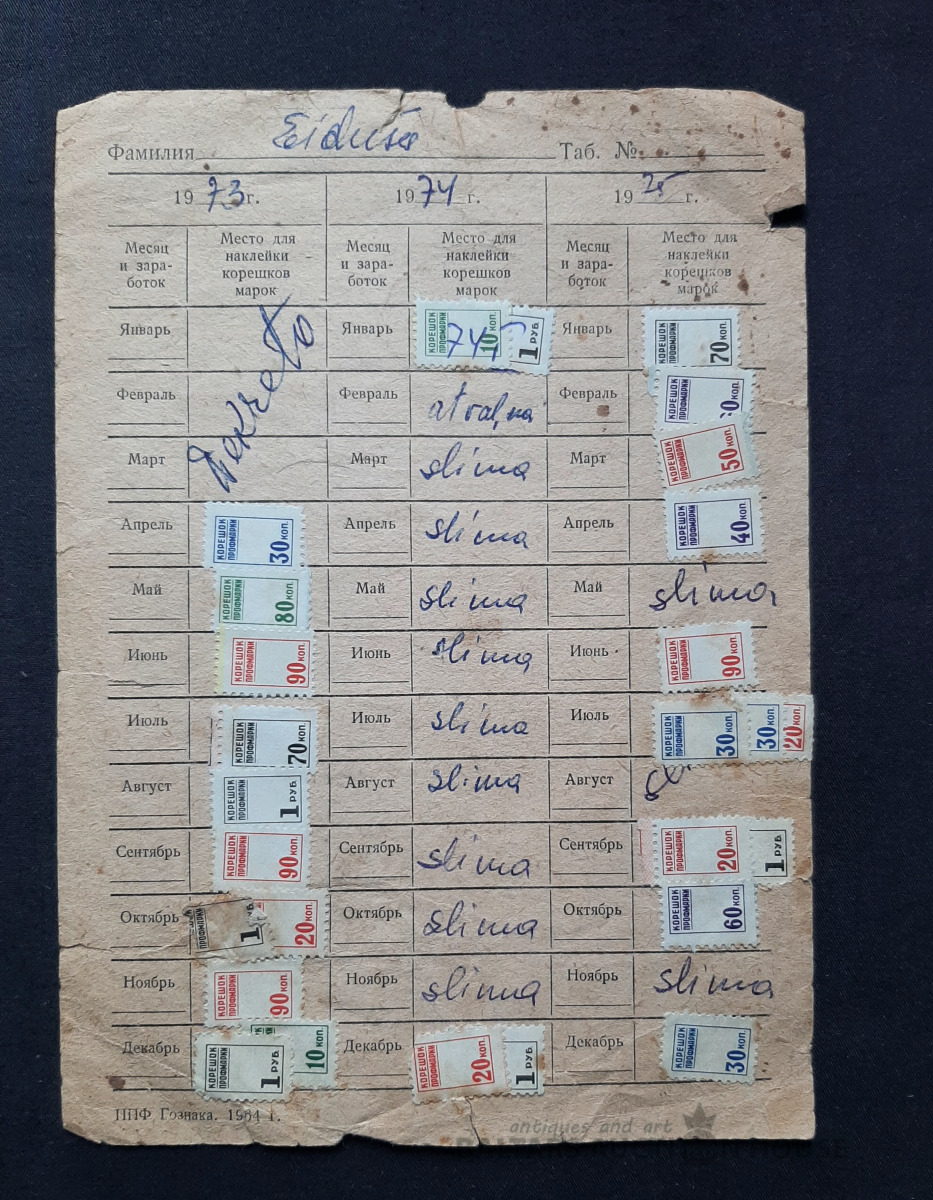 Фамилия Eiduss Таб. №
1973г. 1974 г. 1975 г.
Месяц и зара-боток Место для наклейки корешков марок Месяц и зара-боток Место для наклейки корешков марок Месяц и зара-боток Место для наклейки корешков марок
Январь Январь КОРЕШОК ПРОФМАРКИ 10 КОП. 1 РУБ. Январь КОРЕШОК ПРОФМАРКИ 70 КОП.
Dekreto
Февраль Февраль atvaļ,na Февраль КОРЕШОК ПРОФМАРКИ 0 КОП.
Март Март slima Март КОРЕШОК ПРОФМАРКИ 50 КОП.
Апрель КОРЕШОК ПРОФМАРКИ 30 КОП. Апрель slima Апрель КОРЕШОК ПРОФМАРКИ 40 КОП.
Май КОРЕШОК ПРОФМАРКИ 80 КОП. Май slima Май slima
Июнь КОРЕШОК ПРОФМАРКИ 90 КОП. Июнь slima Июнь КОРЕШОК ПРОФМАРКИ 90 КОП.
Июль КОРЕШОК ПРОФМАРКИ 70 КОП. Июль slima Июль КОРЕШОК ПРОФМАРКИ 30 КОП. 30 КОП. 20 КОП.
Август КОРЕШОК ПРОФМАРКИ 1 РУБ. Август slima Август
Сентябрь КОРЕШОК ПРОФМАРКИ 90 КОП. Сентябрь slima Сентябрь КОРЕШОК ПРОФМАРКИ 20 КОП. 1 РУБ.
Октябрь КОРЕШОК ПРОФМАРКИ 1 РУБ. 20 КОП. Октябрь slima Октябрь КОРЕШОК ПРОФМАРКИ 60 КОП.
Ноябрь КОРЕШОК ПРОФМАРКИ 90 КОП. Ноябрь slima Ноябрь slima
Декабрь КОРЕШОК ПРОФМАРКИ 1 РУБ. 10 КОП. Декабрь КОРЕШОК ПРОФМАРКИ 20 КОП. 1 РУБ. Декабрь КОРЕШОК ПРОФМАРКИ 30 КОП.
ППФ Гознака. 1964 г.
antiques and art